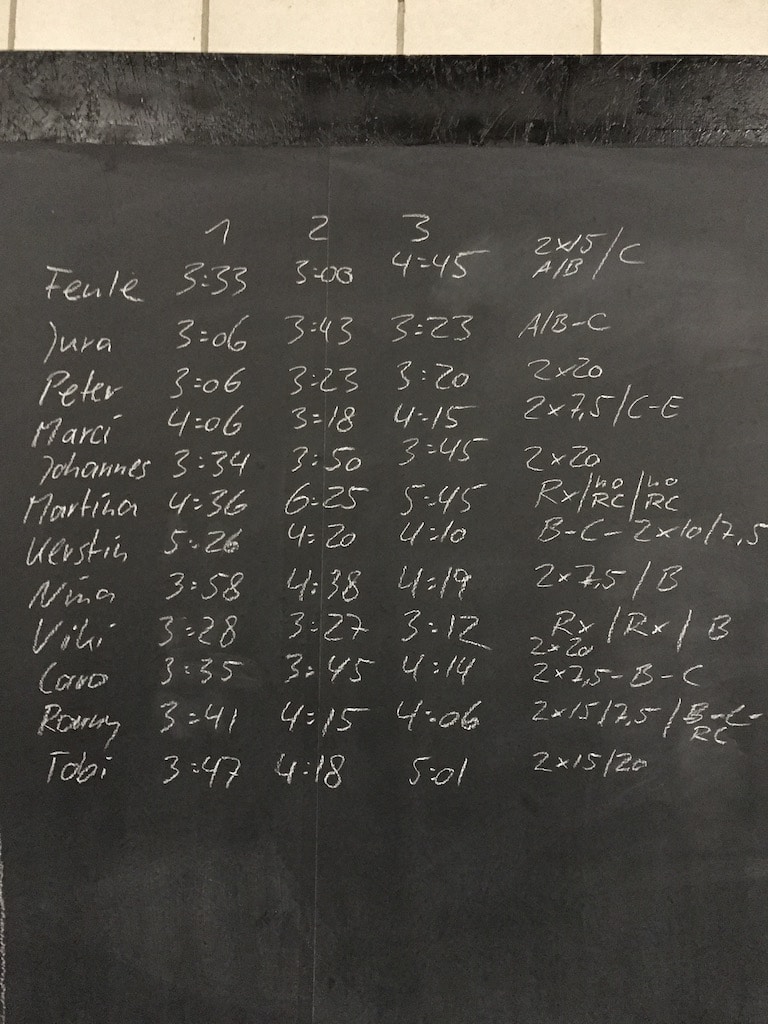 1 2 3
Feule 3:33 3:00 4:45 2x15 A/B / C
Jura 3:06 3:43 3:23 A/B-C
Peter 3:06 3:23 3:20 2x20
Marci 4:06 3:18 4:15 2x7,5/C-E
Johannes 3:34 3:50 3:45 2x20
Martina 4:36 6:25 5:45 Rx/no RC/no RC
Kerstin 5:26 4:20 4:10 B-C-2x10/7,5
Nina 3:58 4:38 4:19 2x7,5/B
Viki 3:28 3:27 3:12 Rx/Rx/B
2x20
Caro 3:35 3:45 4:14 2x7,5-B-C
Ronny 3:41 4:15 4:06 2x15/7,5/B-C-
RC
Tobi 3:47 4:18 5:01 2x15/20